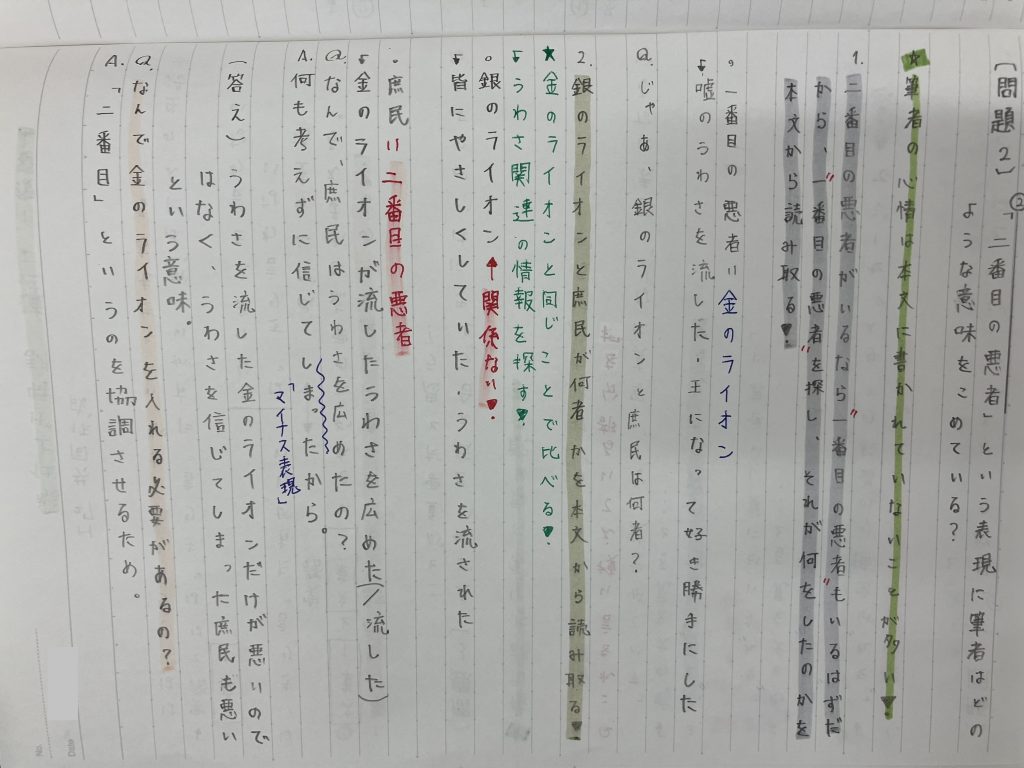 〔問題2〕②「二番目の悪者」という表現に筆者はどの
ような意味をこめている？
★筆者の心情は本文に書かれていないことが多い♥
1. 二番目の悪者がいるなら"一番目の悪者"もいるはずだ
から、"一番目の悪者"を探し、それが何をしたのかを
本文から読み取る♥
。一番目の悪者＝金のライオン
↓嘘のうわさを流した・王になって好き勝手にした
Q. じゃあ、銀のライオンと庶民は何者？
2. 銀のライオンと庶民が何者かを本文から読み取る♥
★金のライオンと同じことで比べる♥
↓うわさ関連の情報を探す♥
。銀のライオン↑関係ない♥
↓皆にやさしくしていた・うわさを流された
。庶民＝二番目の悪者
↓金のライオンが流したうわさを広めた(/流した)
Q. なんで、庶民はうわさを広めたの？
A. 何も考えずに信じてしまったから。
「マイナス表現」
(答え) うわさを流した金のライオンだけが悪いので
はなく、うわさを信じてしまった庶民も悪い
という意味。
Q. なんで金のライオンを入れる必要があるの？
A. 「二番目」というのを協調させるため。